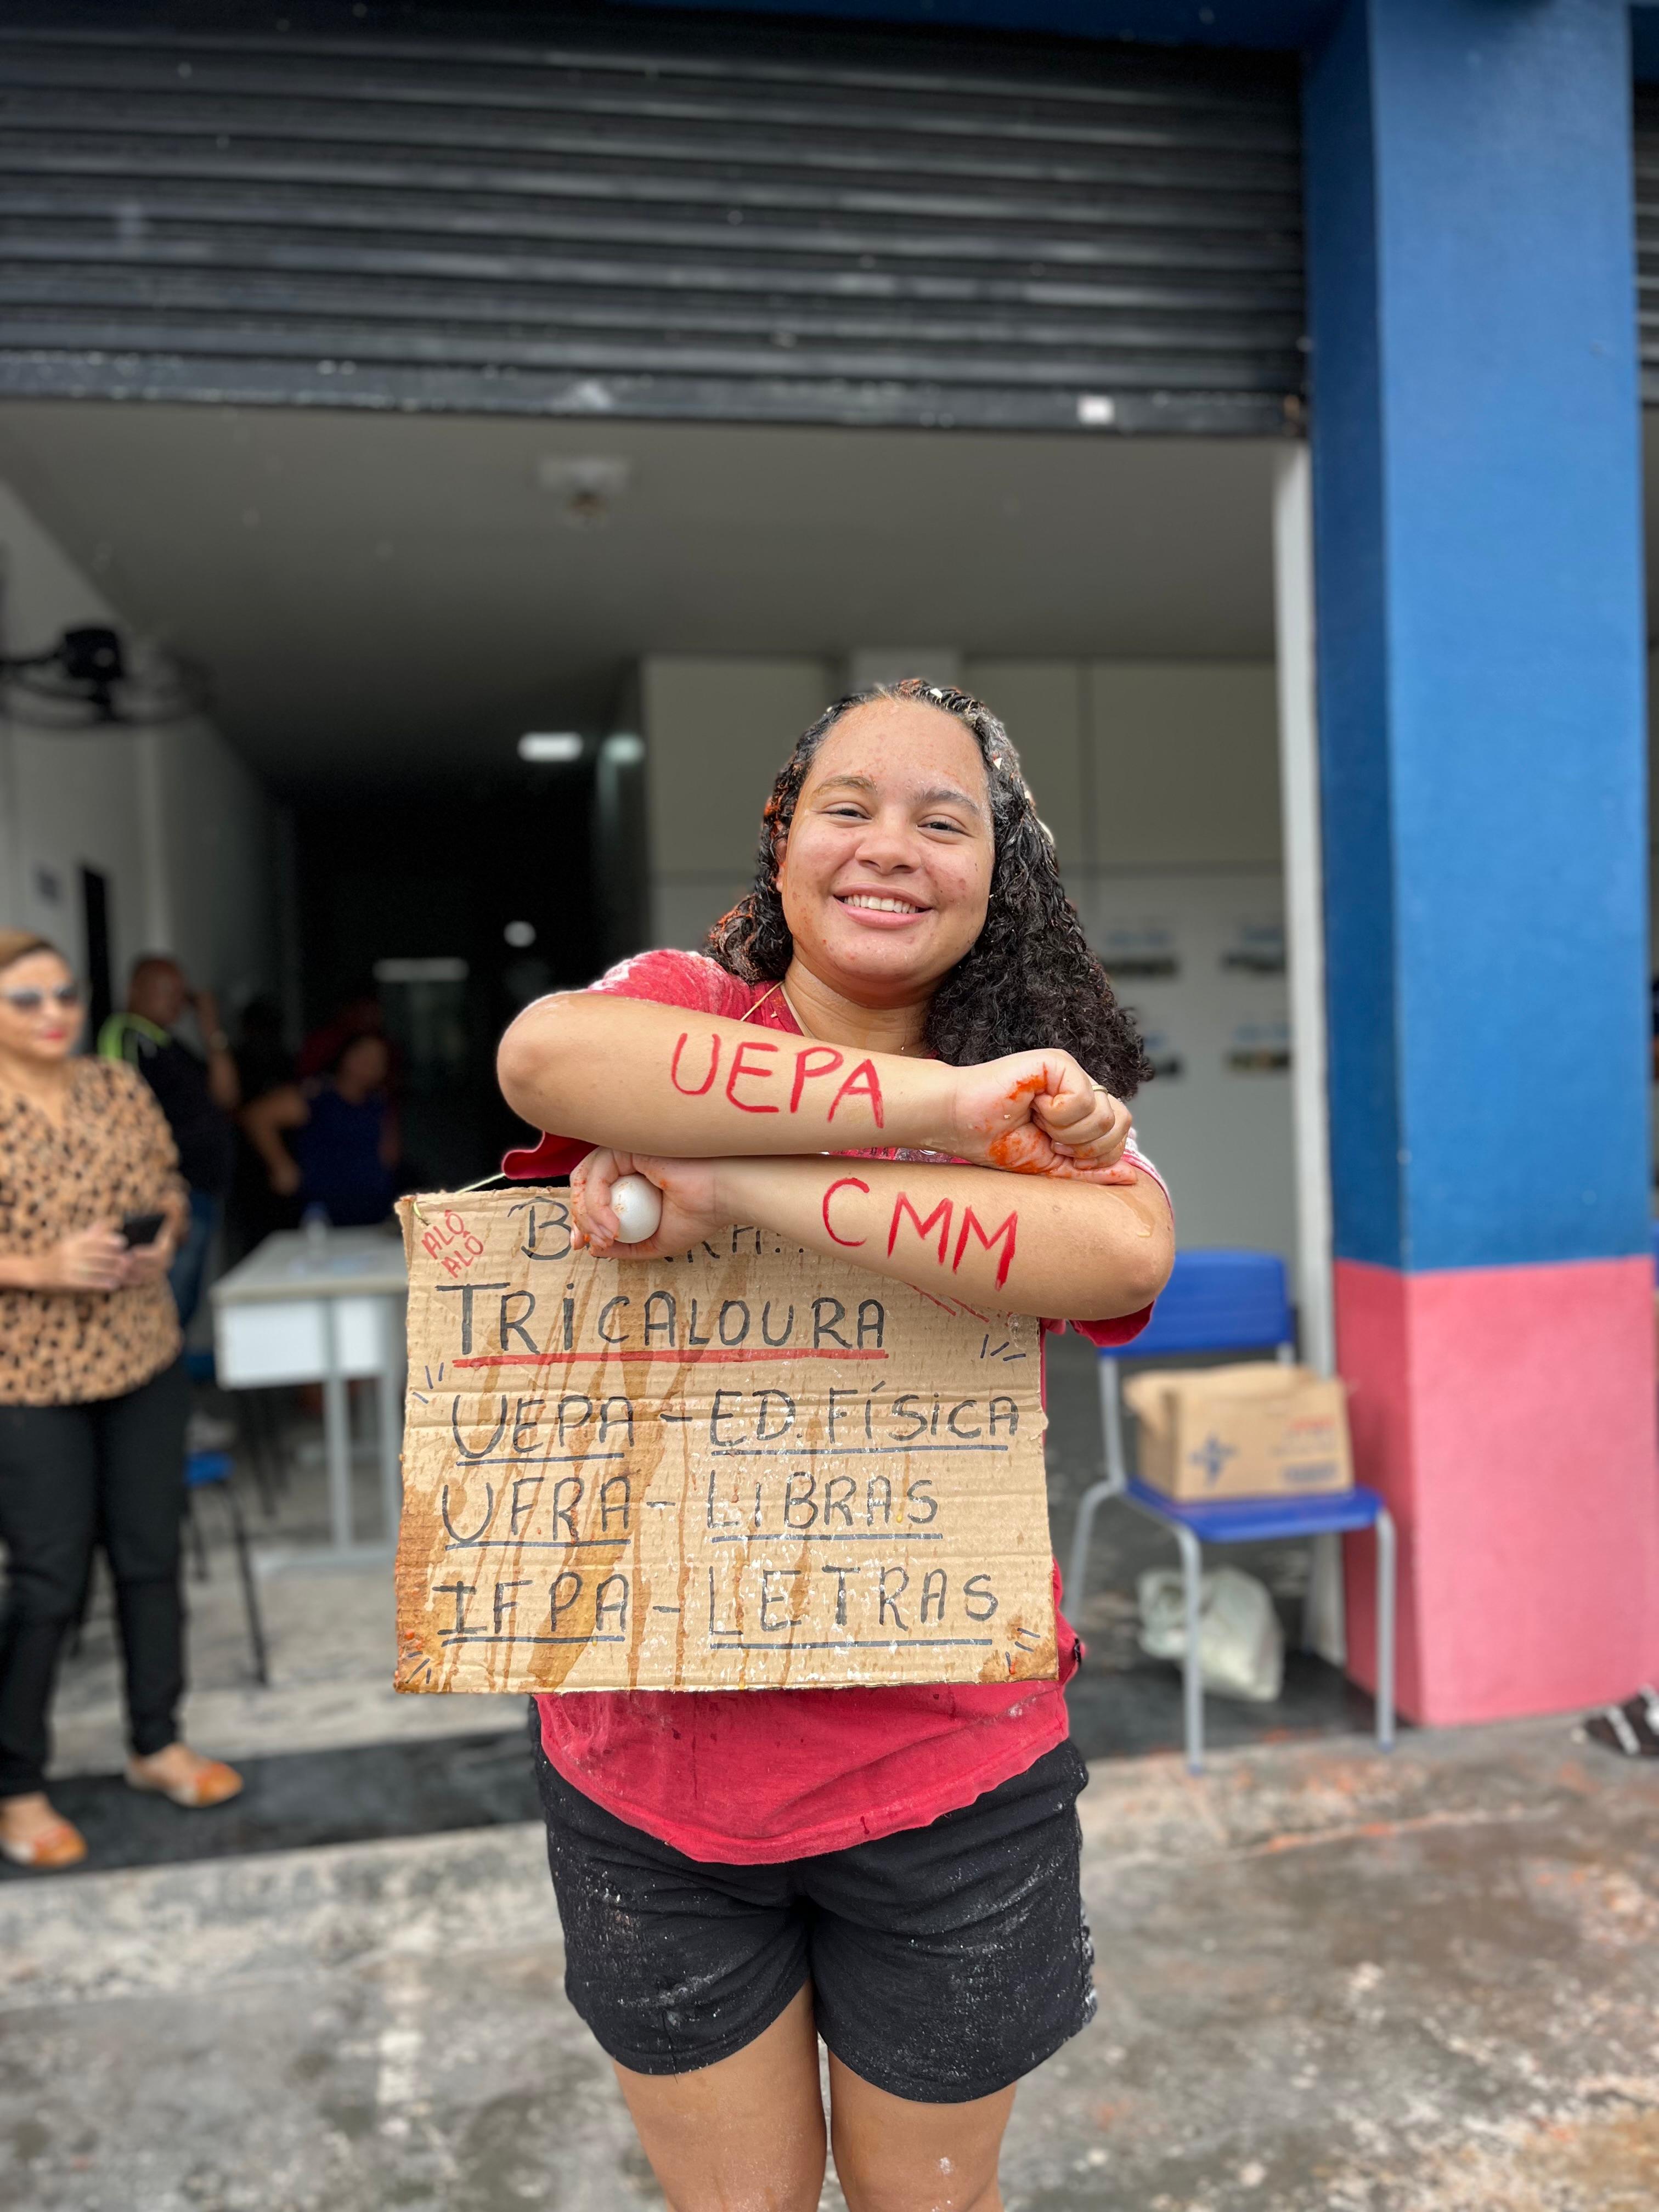 UEPA
CMM
ALÔ
ALÔ
TRICALOURA
UEPA - ED. FÍSICA
UFRA - LIBRAS
IFPA - LETRAS